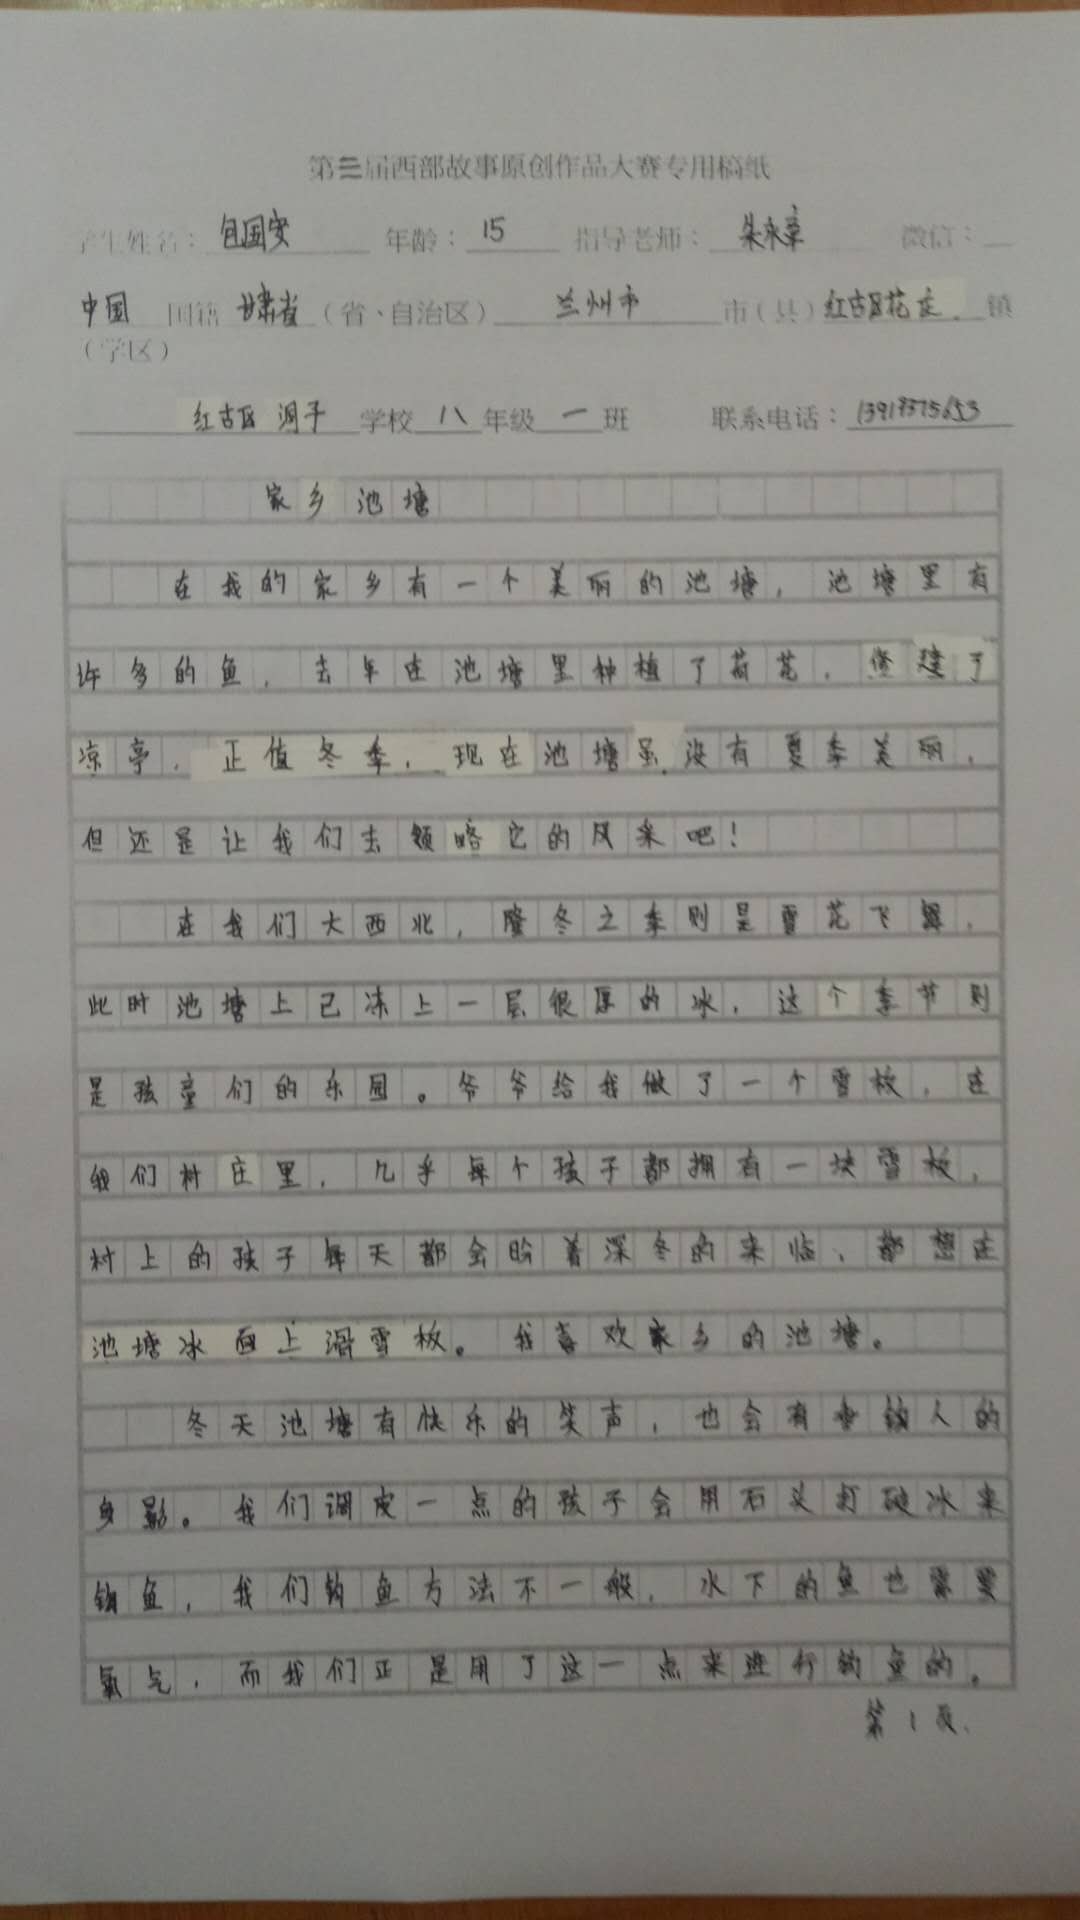 第三届西部故事原创作品大赛专用稿纸
学生姓名： 包国安 年龄： 15 指导老师： 朱永章 微信：
中国 国籍 甘肃省 （省、自治区） 兰州市 市（县） 红古区花庄 镇
（学区）
红古区 洞子 学校 八 年级 一 班 联系电话： 13919375653
家乡池塘
在我的家乡有一个美丽的池塘，池塘里有
许多的鱼，去年在池塘里种植了荷花，修建了
凉亭，正值冬季，现在池塘虽没有夏季美丽，
但还是让我们去领略它的风采吧！
在我们大西北，隆冬之季则是雪花飞舞，
此时池塘上已冻上一层很厚的冰，这个季节则
是孩童们的乐园。爷爷给我做了一个雪板，在
我们村庄里，几乎每个孩子都拥有一块雪板，
村上的孩子每天都会盼着深冬的来临、都想在
池塘冰面上滑雪板。我喜欢家乡的池塘。
冬天池塘有快乐的笑声，也会有垂钓人的
身影。我们调皮一点的孩子会用石头打破冰来
钓鱼，我们钓鱼方法不一般，水下的鱼也需要
氧气，而我们正是用了这一点来进行钓鱼的。
第1页.